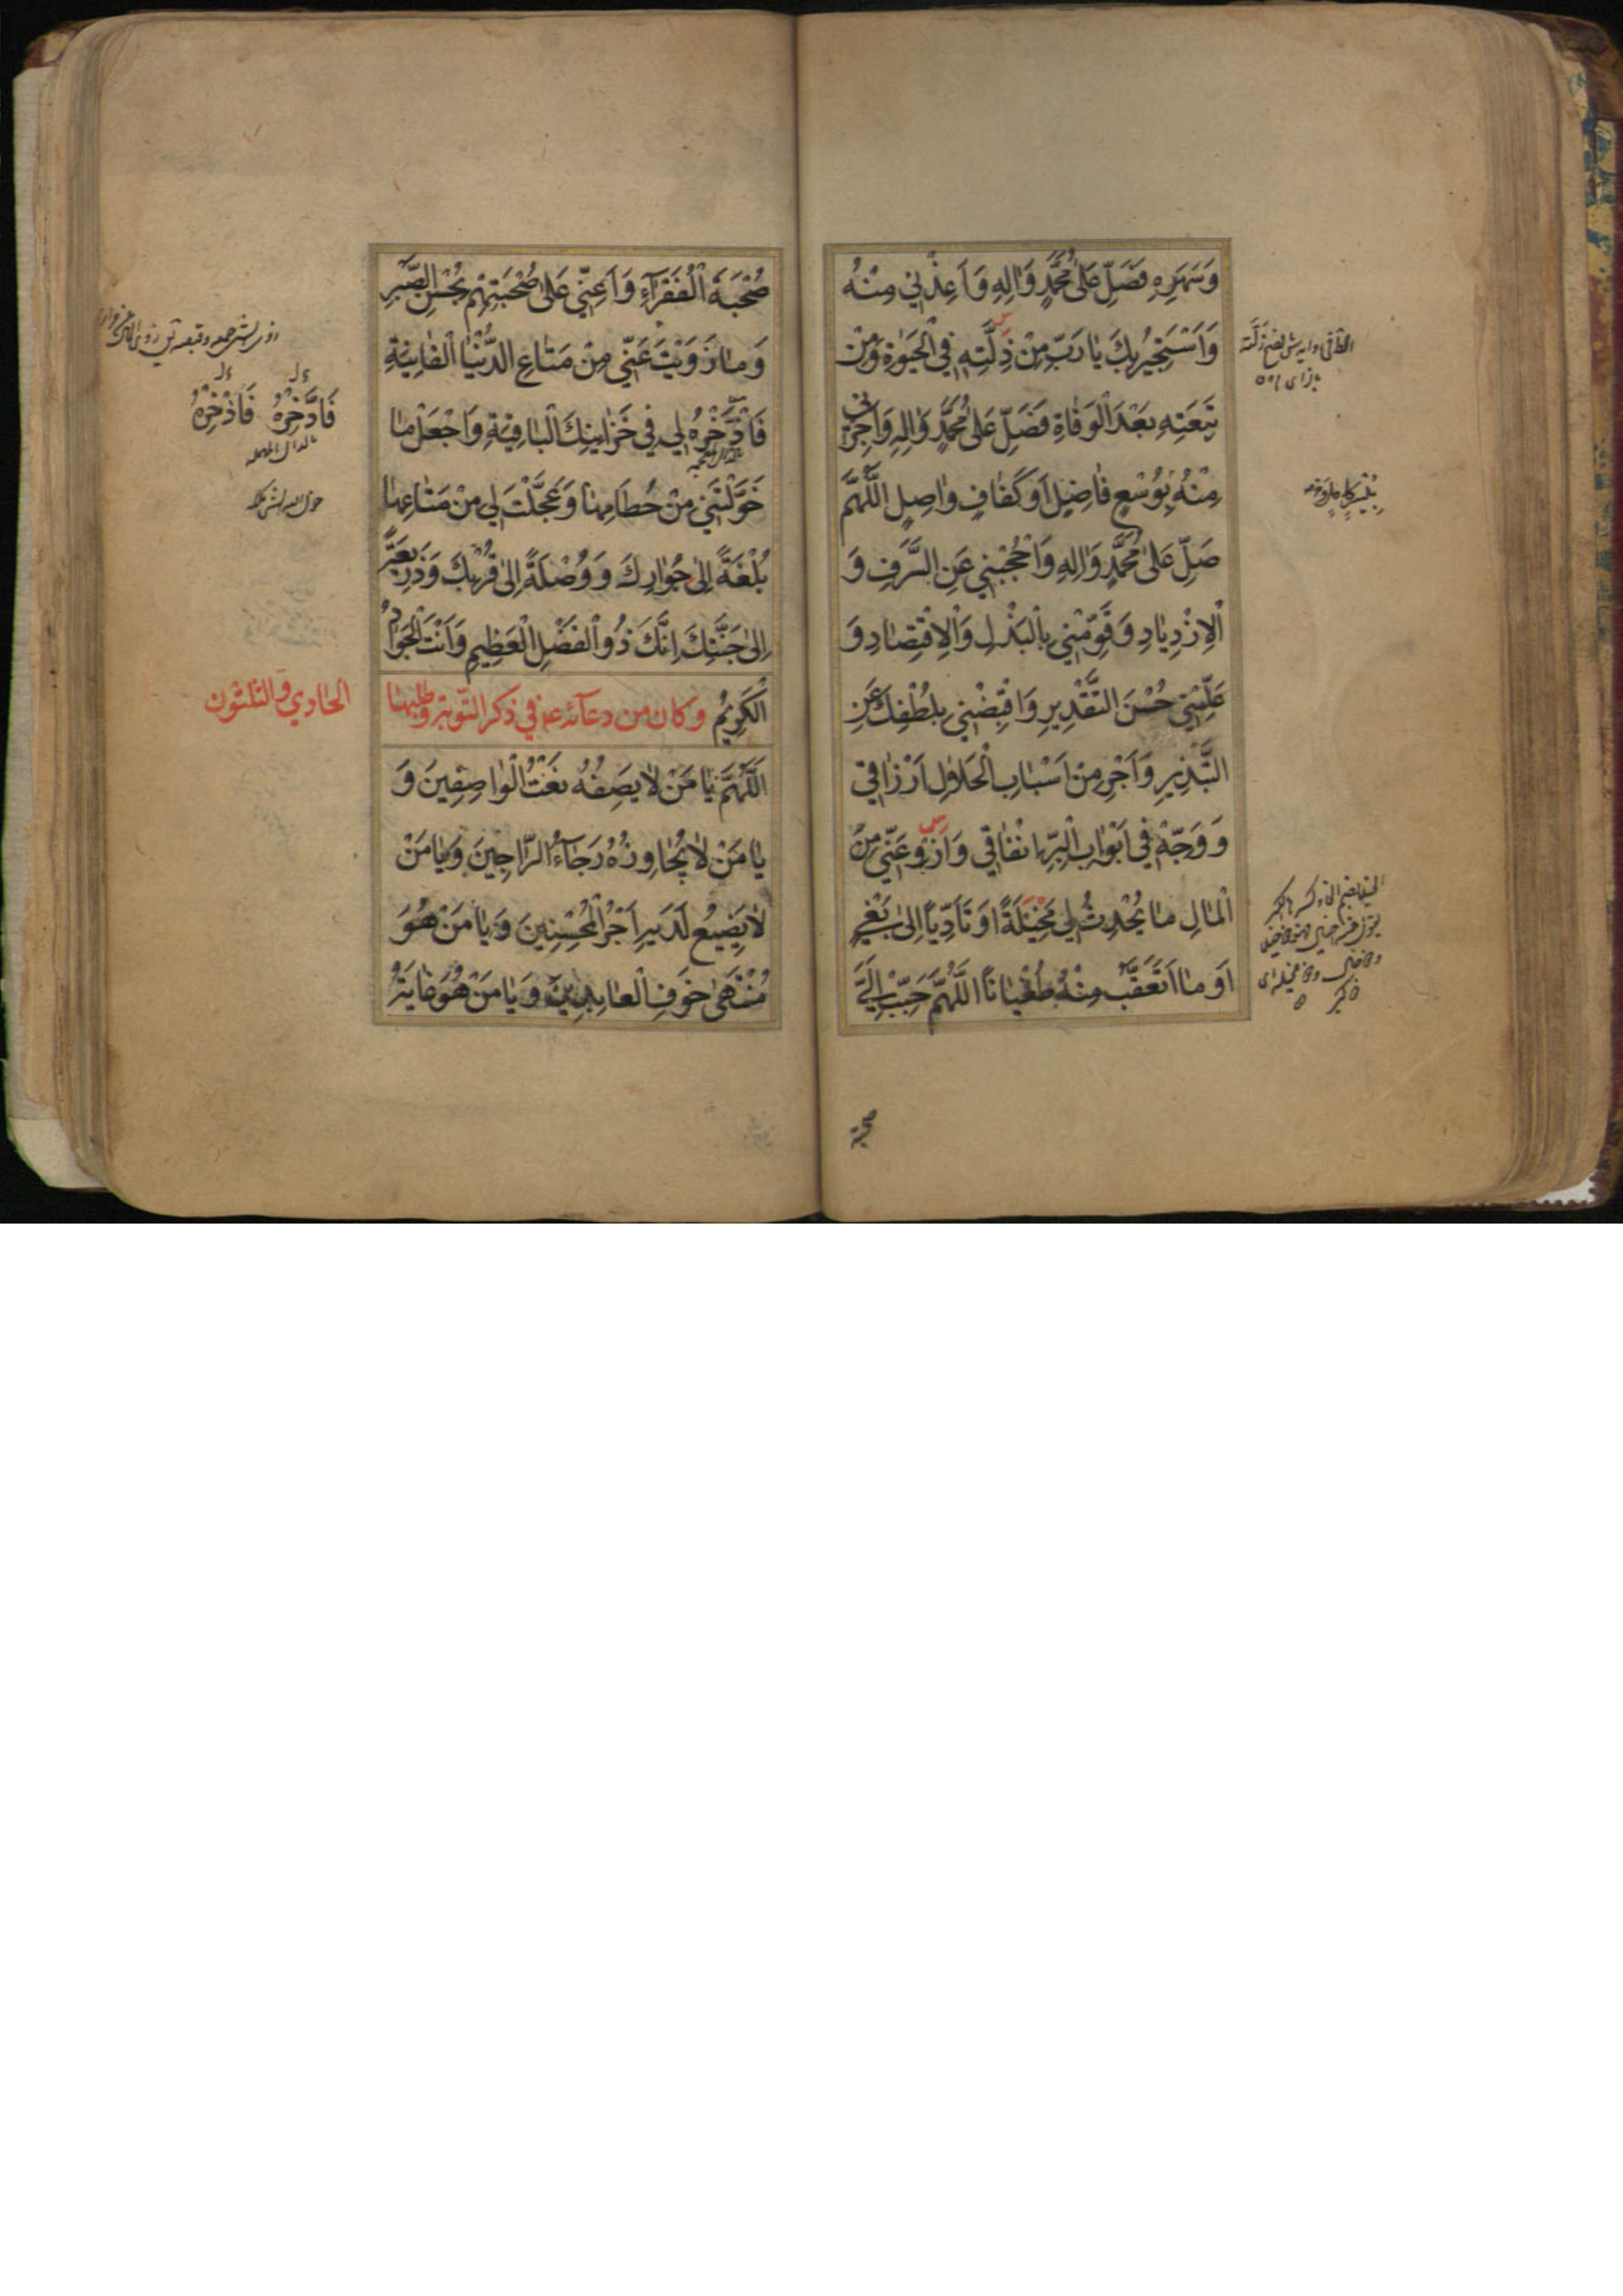 وَسَهَرِهِ فَصَلِّ عَلىٰ مُحَمَّدٍ وَاٰلِهِ وَاَعِذْنِي مِنْهُ
وَاَسْتَجِيرُ بِكَ يٰا رَبِّ مِنْ ذِلَّتِهِ فِي الْحَيٰوةِ وَمِنْ
تَبِعَتِهِ بَعْدَ الْوَفٰاةِ فَصَلِّ عَلىٰ مُحَمَّدٍ وَاٰلِهِ وَاَجِرْنِي
مِنْهُ بِوُسْعٍ فٰاضِلٍ اَوْ كَفٰافٍ وٰاصِلٍ اَللّٰهُمَّ
صَلِّ عَلىٰ مُحَمَّدٍ وَاٰلِهِ وَاحْجُبْنِي عَنِ السَّرَفِ وَ
الْاِزْدِيٰادِ وَقَوِّمْنِي بِالْبَذْلِ وَالْاِقْتِصٰادِ وَ
عَلِّمْنِي حُسْنَ التَّقْدِيرِ وَاقْبِضْنِي بِلُطْفِكَ عَنِ
التَّبْذِيرِ وَاَجْرِ مِنْ اَسْبٰابِ الْحَلاٰلِ اَرْزٰاقِي
وَوَجِّهْ فِي اَبْوٰابِ الْبِرِّ اِنْفٰاقِي وَازْوِ عَنِّي مِنَ
الْمٰالِ مٰا يُحْدِثُ لِي مَخِيْلَةً اَوْ تَأَدِّيًا اِلىٰ بَغْيٍ
اَوْ مٰا اَتَعَقَّبُ مِنْهُ طُغْيٰانًا اَللّٰهُمَّ حَبِّبْ اِلَيَّ
صحبة
صُحْبَةَ الْفُقَرٰآءِ وَاَعِنِّي عَلىٰ صُحْبَتِهِمْ بِحُسْنِ الصَّبْرِ
وَمٰا زَوَيْتَ عَنِّي مِنْ مَتٰاعِ الدُّنْيٰا الْفٰانِيَةِ
فَاذْخَرْهُ لِي فِي خَزٰايِنِكَ الْبٰاقِيَةِ وَاجْعَلْ مٰا
خَوَّلْتَنِي مِنْ حُطٰامِهٰا وَعَجَّلْتَ لِي مِنْ مَتٰاعِهٰا
بُلْغَةً اِلىٰ جُوٰارِكَ وَوُصْلَةً اِلىٰ قُرْبِكَ وَذَرِيعَةً
اِلىٰ جَنَّتِكَ اِنَّكَ ذُو الْفَضْلِ الْعَظِيمِ وَاَنْتَ الْجَوٰادُ
الْكَرِيْمُ وكان من دعآئه ع في ذكر التّوبة وطلبها
الحادي والثلثون
اَللّٰهُمَّ يٰا مَنْ لاٰ يَصِفُهُ نَعْتُ الْوٰاصِفِينَ وَ
يٰا مَنْ لاٰ يُجٰاوِزُهُ رَجٰآءُ الرّٰاجِينَ وَيٰا مَنْ
لاٰ يَضِيعُ لَدَيْهِ اَجْرُ الْمُحْسِنِينَ وَيٰا مَنْ هُوَ
مُنْتَهىٰ خَوْفِ الْعٰابِدِينَ وَيٰا مَنْ هُوَ غٰايَةُ
فَادَّخِرْهُ فَاذْخَرْهُ
بالدال المهملة